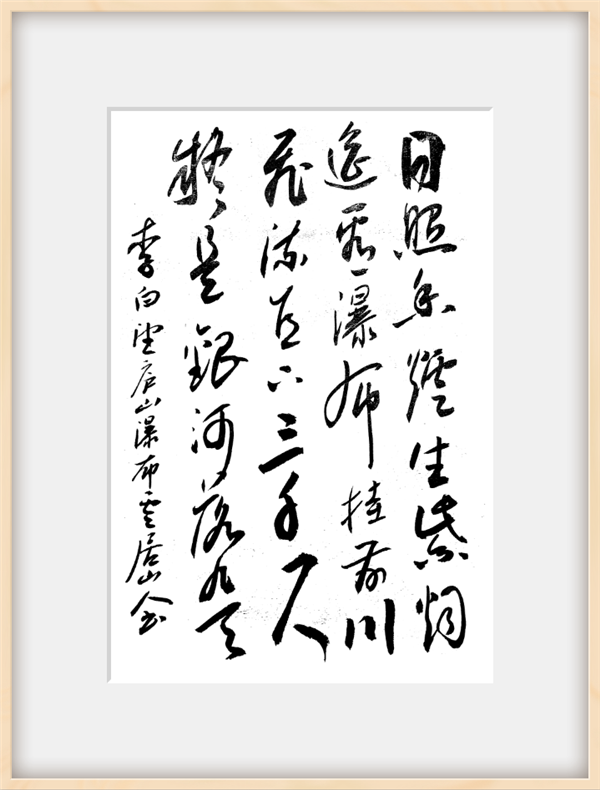 日照香爐生紫烟
遙看瀑布挂前川
飛流直下三千尺
疑是銀河落九天
李白望庐山瀑布雲居山